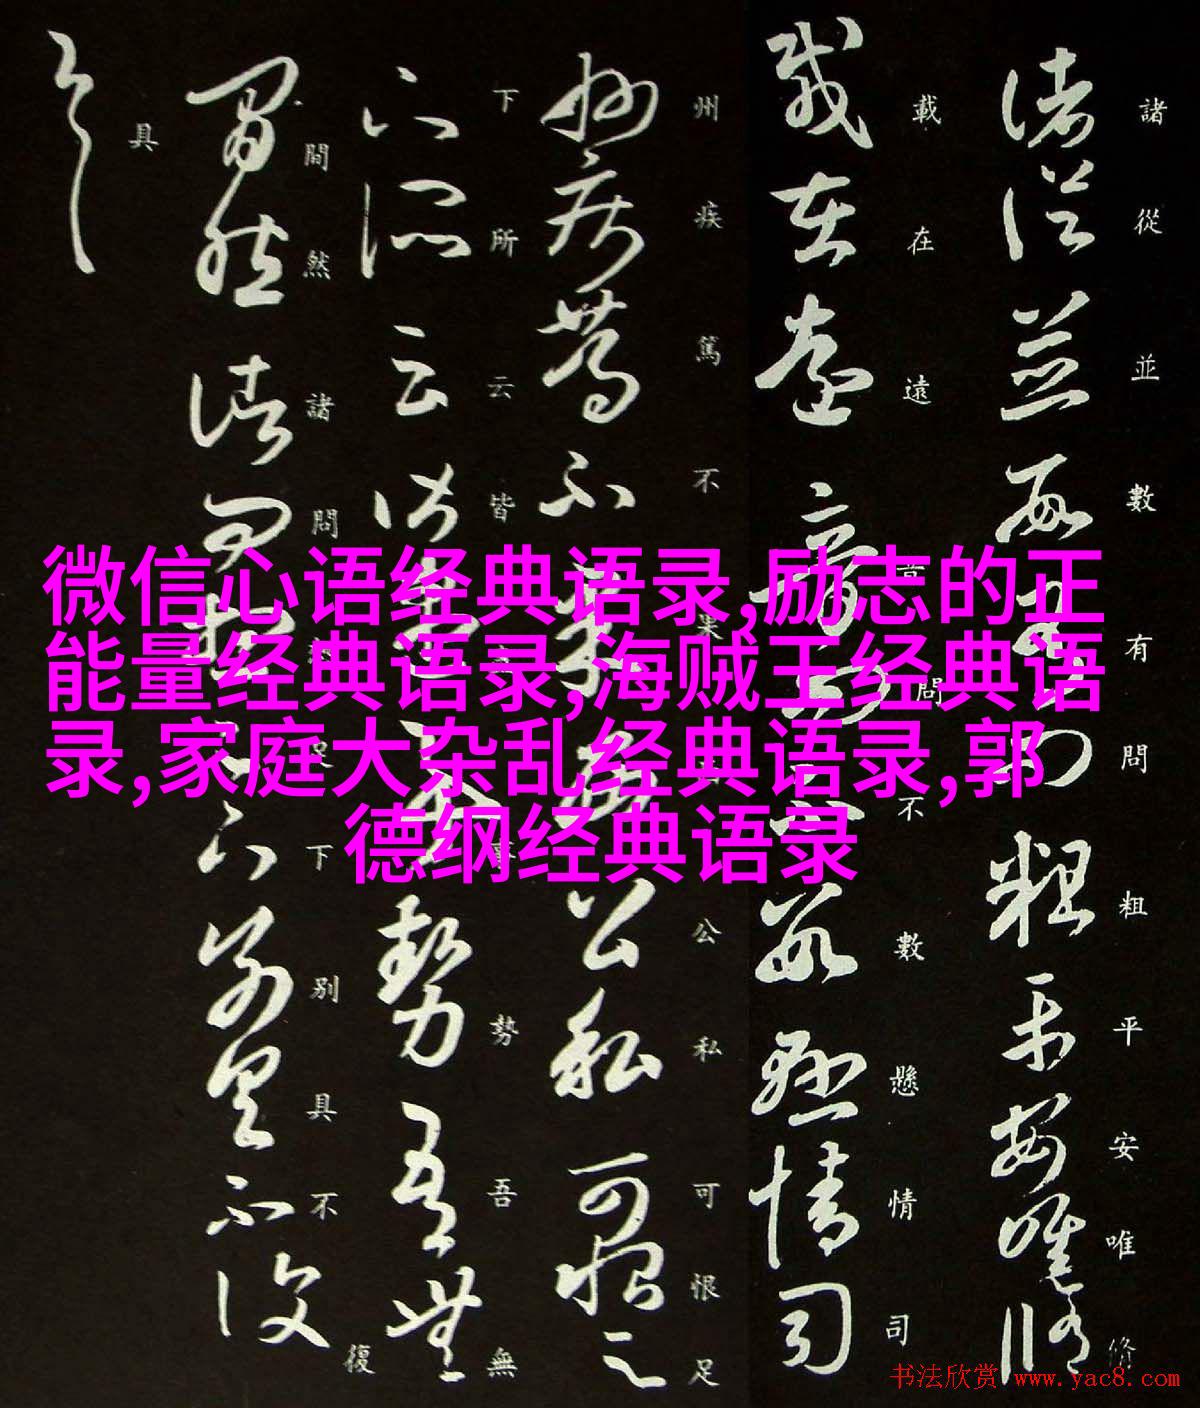 諸從並數有問粗平安唯修
載在遠音問不數懸情司
州疾篤不果公私可恨足
下所云皆事勢吾無
間然諸問想足下別具不復
具
微信心语经典语录,励志的正
能量经典语录,海贼王经典语
录,家庭大杂乱经典语录,郭
德纲经典语录
书法欣赏 www.yac8.com